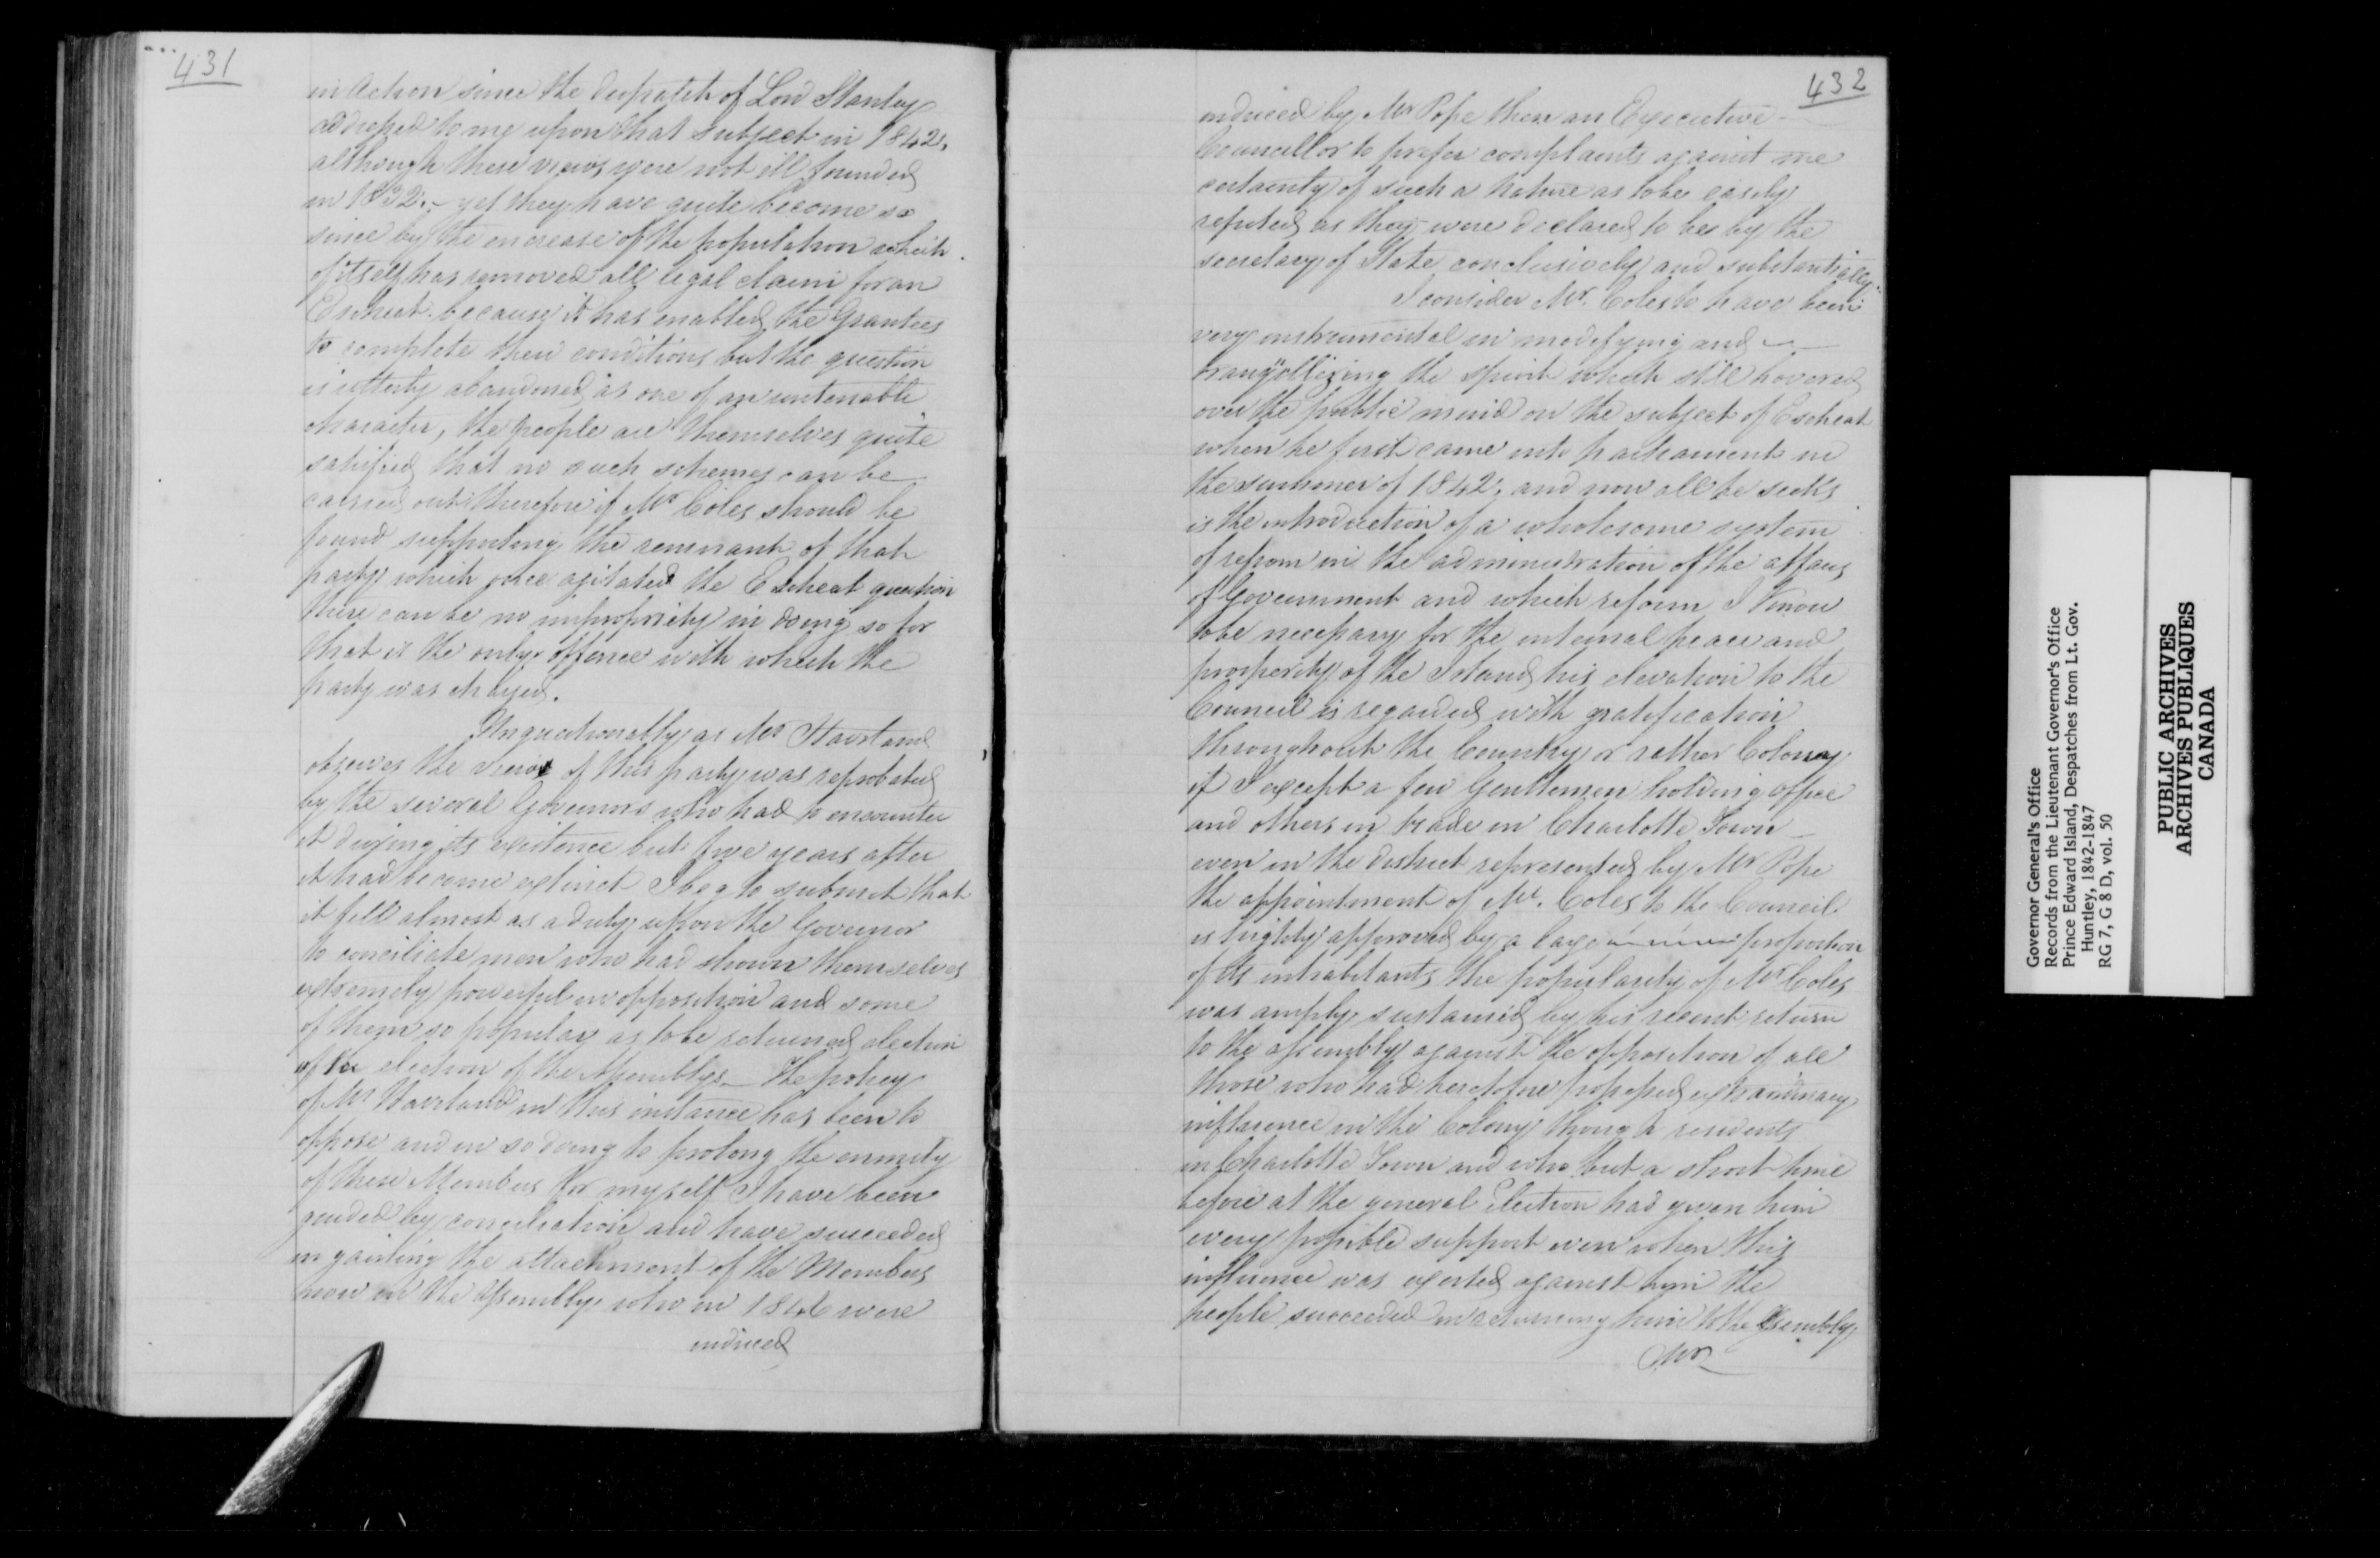 431
in action since the despatch of Lord Stanley
addressed to me upon that subject in 1842,
although these views were not ill founded
in 1832. – yet they have quite become so
since by the encrease of the population which
of itself has removed all legal claim for an
Escheat because it has enabled the Grantees
to complete their conditions but the question
is utterly abandoned as one of an untenable
character, the people are themselves quite
satisfied that no such schemes can be
carried out therefore if Mr Coles should be
found supporting the remnant of that
party which once agitated the Escheat question
there can be no impropriety in doing so for
that is the only offence with which the
party was charged.
Unquestionably as Mr Haviland
observes the views of this party was reprobated
by the several Governors who had to encounter
it during its existence but five years after
it had become extinct I beg to submit that
it fell almost as a duty upon the Governor
to conciliate men who had shown themselves
extremely powerful in opposition and some
of them so popular as to be returned election
after election of the Assembly – the policy
of Mr Haviland in this instance has been to
oppose and in so doing to prolong the enmity
of these Members for myself I have been
guided by conciliation and have succeeded
in gaining the attachment of the Members
now in the Assembly who in 1846 were
induced
432
induced by Mr Pope then an Executive –
Councillor to prefer complaints against me
certainly of such a nature as to be easily
refuted as they were declared to be by the
secretary of State conclusively and substantially.
I consider Mr. Coles to have been
very instrumental in modifying and –
tranquillizing the spirit which still hovered
over the public mind on the subject of Escheat
when he first came into parliament in
the summer of 1842, and now all he seeks
is the introduction of a wholesome system
of reform in the administration of the affairs
of Government and which reform I know
to be necessary for the internal peace and
prosperity of the Island, his elevation to the
Council is regarded with gratification
throughout the Country or rather Colony
if I except a few Gentlemen holding office
and others in trade in Charlotte Town –
even in the district represented by Mr Pope
the appointment of Mr. Coles to the Council
is highly approved by a large proportion
of its inhabitants the popularity of Mr Coles
was amply sustained by his recent return
to the assembly against the opposition of all
those who had heretofore possessed extraordinary
influence in the Colony though residents
in Charlotte Town and who but a short time
before at the general Election had given him
every possible support even when this
influence was exerted against him the
people succeeded in returning him to the Assembly
Mr
Governor General's Office
Records from the Lieutenant Governor's Office
Prince Edward Island, Despatches from Lt. Gov.
Huntley, 1842-1847
RG 7, G 8 D, vol. 50
PUBLIC ARCHIVES
ARCHIVES PUBLIQUES
CANADA